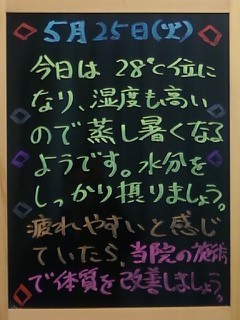 5月25日(火)
今日は 28℃位に
なり、湿度も高い
ので蒸し暑くなる
ようです。水分を
しっかり摂りましょう。
疲れやすいと感じ
ていたら、当院の施術
で体質を改善しましょう。